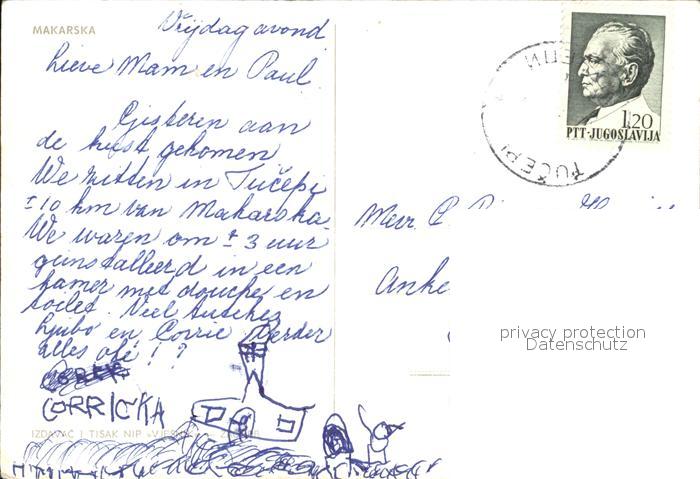 MAKARSKA
Vrijdag avond
Lieve Mam en Paul
Gisteren aan
de kust gekomen
We zitten in Tučepi
± 10 km van Makarska
We waren om ± 3 uur
geinstalleerd in een
kamer met douche en
toilet. Viel
Ljubo en Corrie Verder
alles oké! ?
CORRICKA
IZDAVAČ I TISAK NIP »VJESNIK«
1.20
PTT-JUGOSLAVIJA
TUČEPI
Mevr. C
Anke
privacy protection
Datenschutz